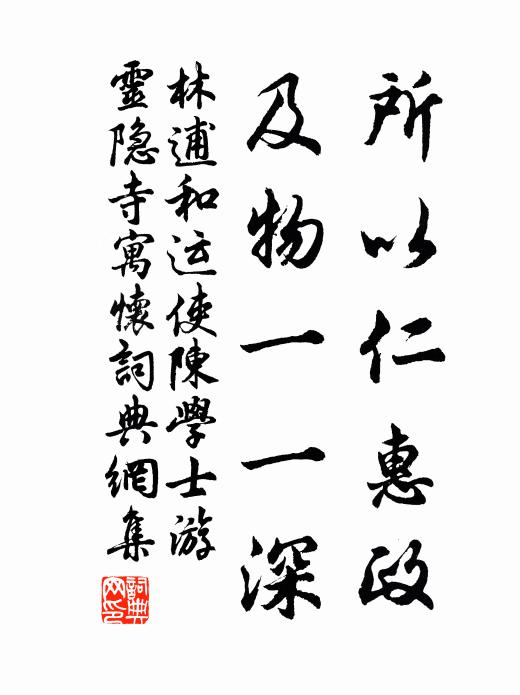 所以仁惠政
及物一一深
林逋和运使陳學士游
靈隐寺寓懷詞典網集
詞典网印